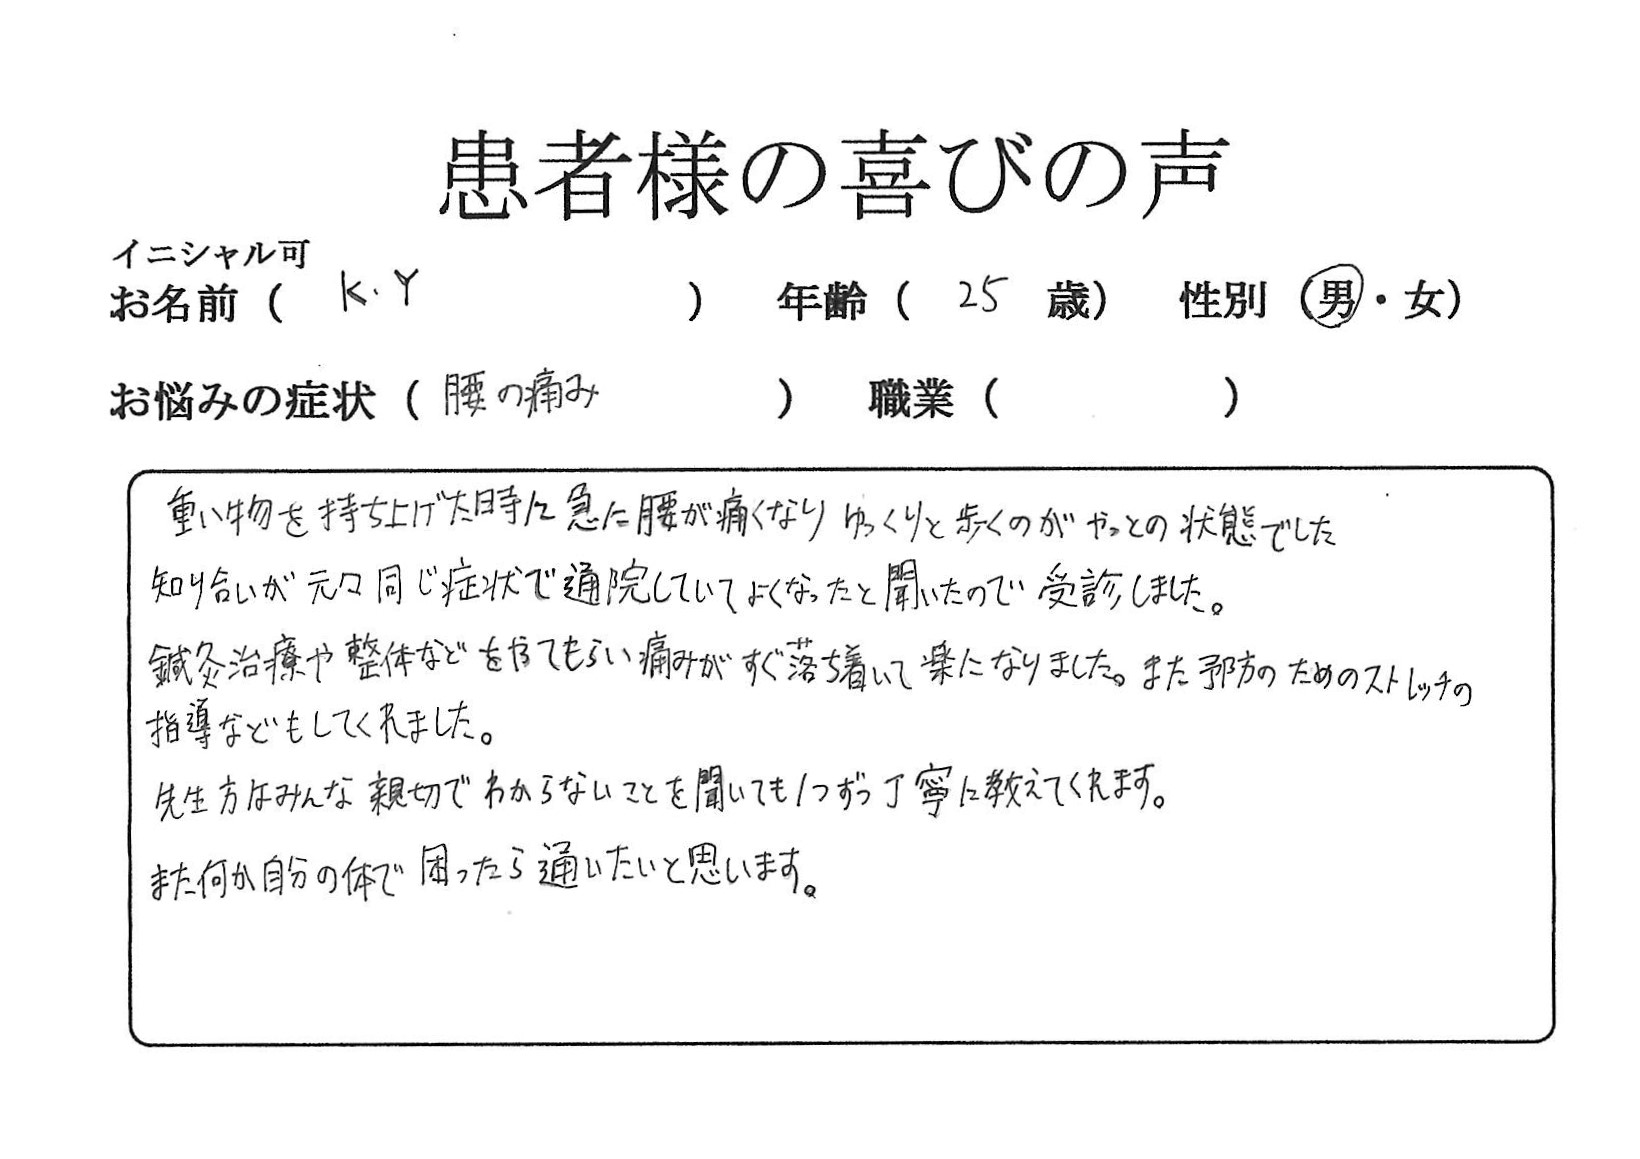 患者様の喜びの声
イニシャル可
お名前（ K.Y ） 年齢（ 25 歳） 性別（男・女）
お悩みの症状（ 腰の痛み ） 職業（ ）
重い物を持ち上げた時に急に腰が痛くなりゆっくりと歩くのがやっとの状態でした
知り合いが元々同じ症状で通院していてよくなったと聞いたので受診しました。
鍼灸治療や整体などをやてもらい痛みがすぐ落ち着いて楽になりました。また予防のためのストレッチの
指導などもしてくれました。
先生方はみんな親切でわからないことを聞いても1つずつ丁寧に教えてくれます。
また何か自分の体で困ったら通いたいと思います。